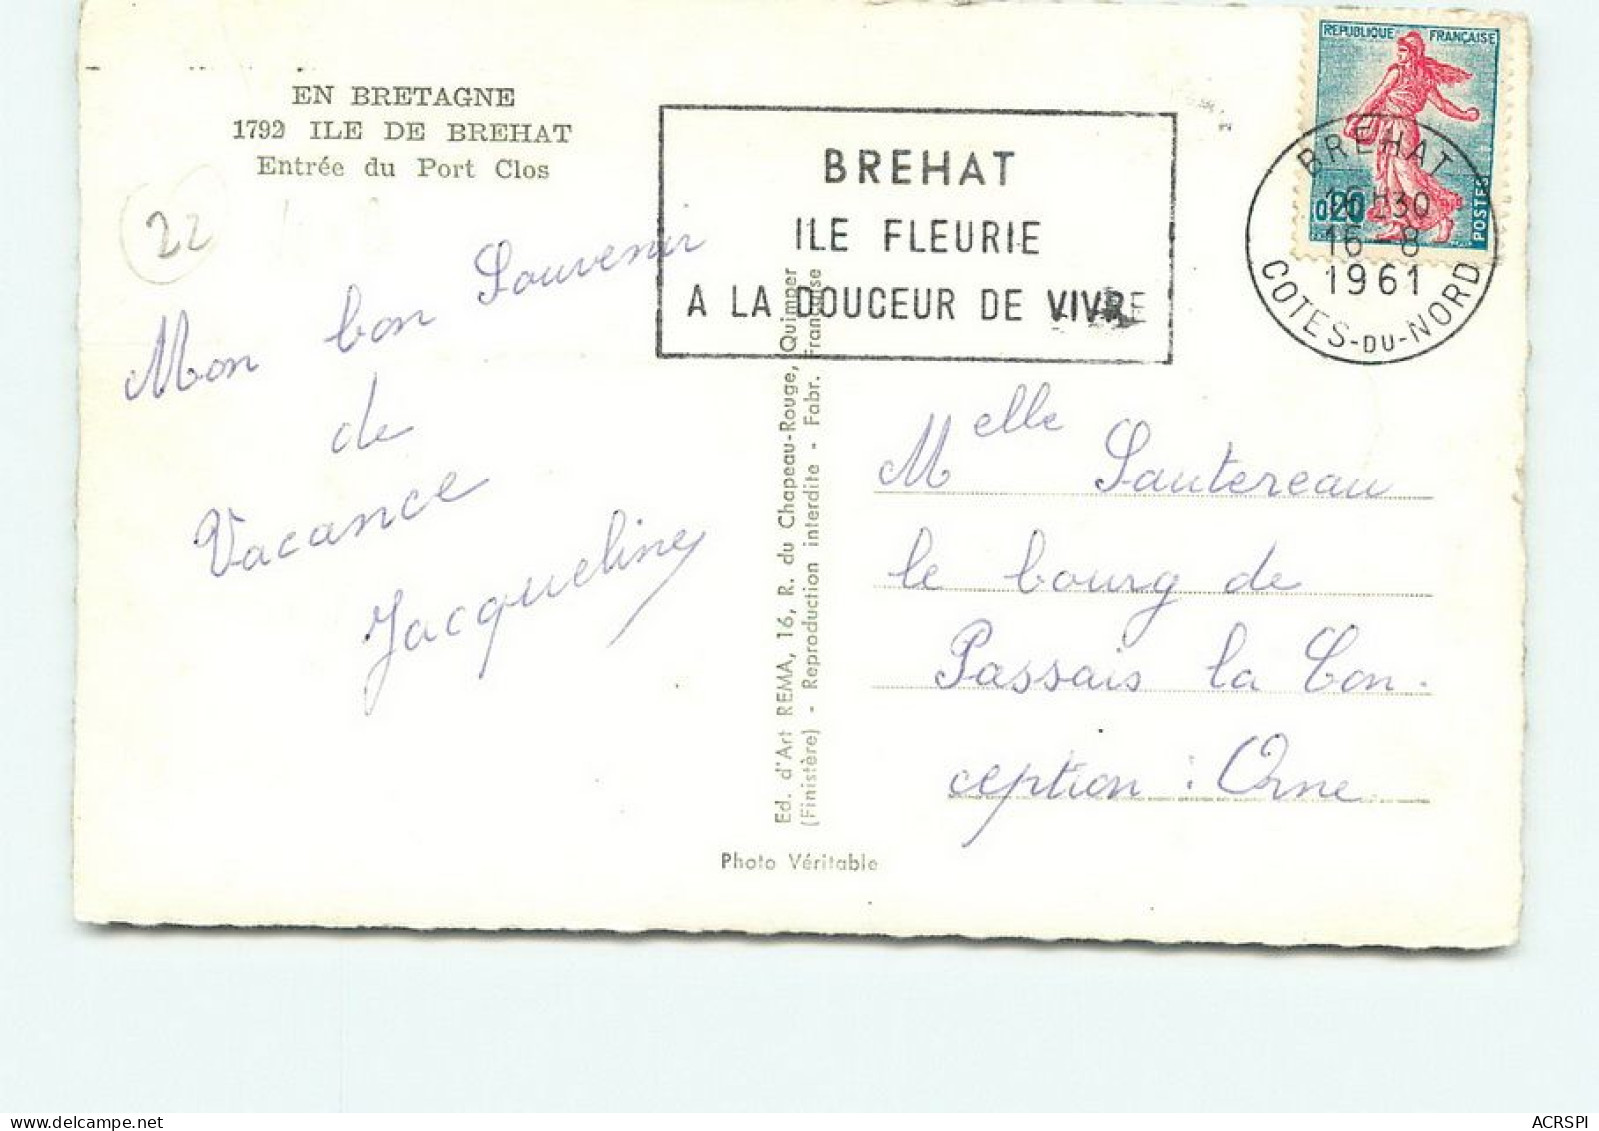 EN BRETAGNE
1792 ILE DE BREHAT
Entrée du Port Clos
22
Mon bon Souvenir
de
Vacance
Jacqueline
BREHAT
ILE FLEURIE
A LA DOUCEUR DE VIVRE
REPUBLIQUE FRANÇAISE
0,20
POSTES
BREHAT
16H30
16-8
1961
COTES-DU-NORD
Ed. d'Art REMA, 16, R. du Chapeau-Rouge, Quimper
(Finistère) - Reproduction interdite - Fabr. Française
Photo Véritable
Melle Sautereau
le bourg de
Passais la Con-
ception : Orne
ACRSPI